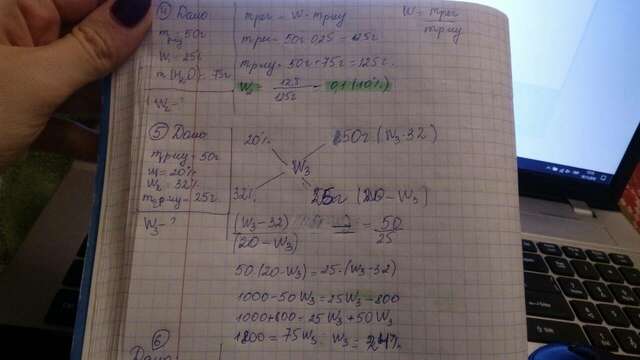 ④ Дано
m р-ру = 50г
W₁ = 25%
m(H₂O) = 75г
W₂ - ?
mреч = W · mр-ну
mреч = 50г · 0,25 = 12,5г
mр-ну = 50г + 75г = 125г.
W₂ = 12,5 / 125г = 0,1 (10%)
W = mреч / mр-ну
⑤ Дано:
m₁р-ну = 50г
W₁ = 20%
W₂ = 32%
m₂р-ну = 25г.
W₃ - ?
20% 50г (W₃ - 32)
W₃
32% 25г (20 - W₃)
(W₃ - 32) / (20 - W₃) = 50 / 25
50 · (20 - W₃) = 25 · (W₃ - 32)
1000 - 50W₃ = 25W₃ - 800
1000 + 800 = 25W₃ + 50W₃
1800 = 75W₃ W₃ = 24%
⑥
Дано